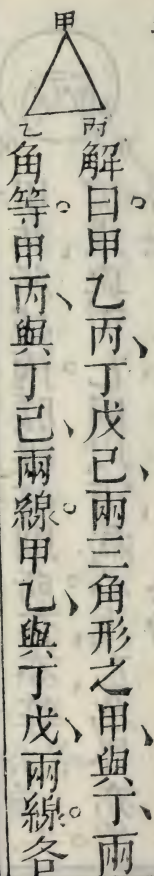 甲
丙
乙
解曰。甲乙丙、丁戊己、兩三角形之甲與丁、兩
角等。甲丙與丁己、兩線。甲乙與丁戊、兩線。各